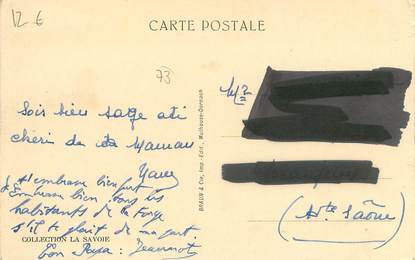 12-6
CARTE POSTALE
73
Sois bien sage
chéri de ta Maman
J't embrasse bien fort
Embrasse bien tous les
habitants de la forge
s'il te plait de ma part.
COLLECTION LA SAVOIE
Ton Papa: Jeannot
BRAUN & Cie, Imp.-Édit., Mulhouse-Dornach
Mr
(Hte Saône)